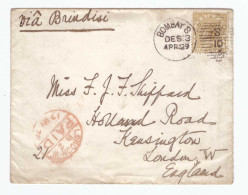 viâ Brindisi
BOMBAY
Miss F. J. F. Shippard
Holland Road
Kensington
London, W
England
PAID